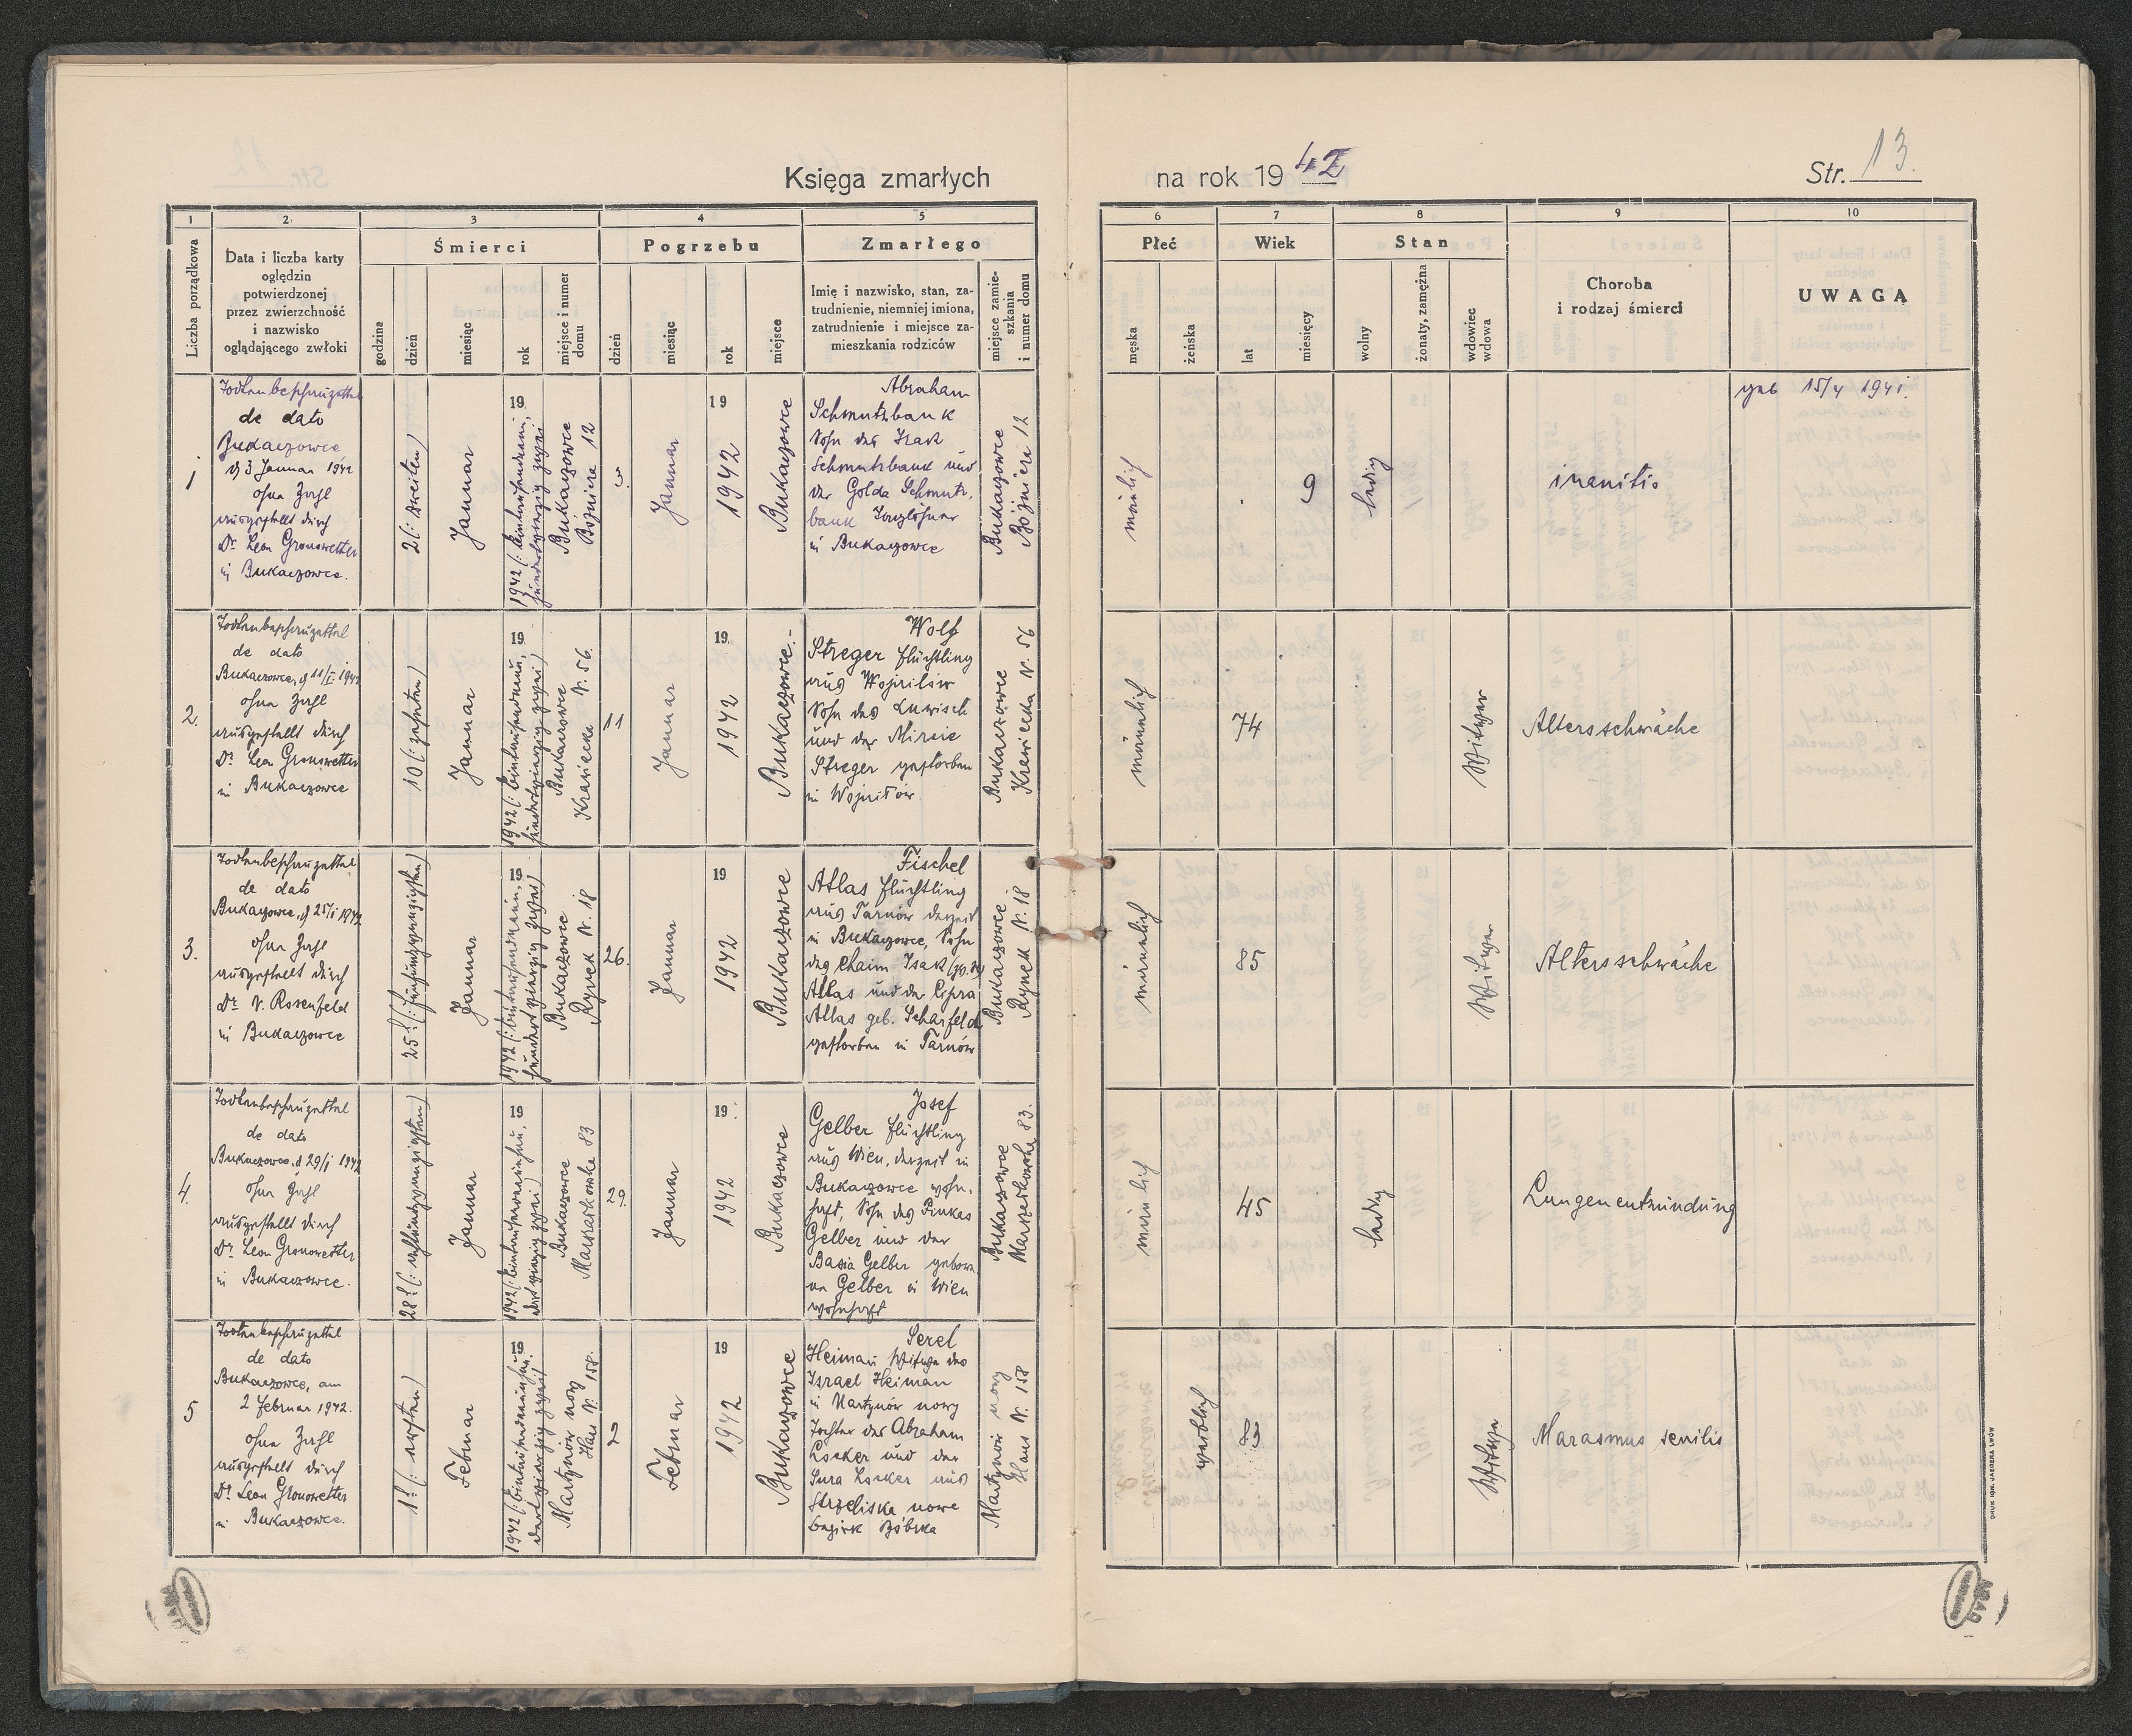 Księga zmarłych
na rok 1942
Str. 13.
1
2
3
4
5
Liczba porządkowa
Data i liczba karty
oględzin
potwierdzonej
przez zwierzchność
i nazwisko
oglądającego zwłoki
Śmierci
godzina
dzień
miesiąc
rok
miejsce i numer
domu
Pogrzebu
dzień
miesiąc
rok
miejsce
Zmarłego
Imię i nazwisko, stan, za-
trudnienie, niemniej imiona,
zatrudnienie i miejsce za-
mieszkania rodziców
miejsce zamie-
szkania
i numer domu
6
7
8
9
10
Płeć
męska
żeńska
Wiek
lat
miesięcy
Stan
wolny
żonaty, zamężna
wdowiec
wdowa
Choroba
i rodzaj śmierci
UWAGA
1
Todtenbeschauzettel
de dato
Bukaczowce
3 Januar 1942
ohne Zahl
ausgestellt durch
Dr Leon Gronowetter
in Bukaczowce.
2(: zweiten)
Januar
19
1942 (: Eintausendneun,
hundertvierzig zwei
Bukaczowce
Bożnicza 12
3.
Januar
19
1942
Bukaczowce
Abraham
Schmutzbank
Sohn des Izak
Schmutzbank und
der Golda Schmutz.
bank
in Bukaczowce
Bukaczowce
Bożnicza 12
männlich
9
ledig
inanitio
geb 15/4 1941.
2.
Todtenbeschauzettel
de dato
Bukaczowce, 11/I 1942
ohne Zahl
ausgestellt durch
Dr Leon Gronowetter
in Bukaczowce
10 (: zehnten)
Januar
19
1942 (: Eintausendneun,
hundertvierzig zwei)
Bukaczowce
Krasiecka N. 56.
11
Januar
19
1942
Bukaczowce.-
Wolf
Streger Flüchtling
aus Wojniłów
Sohn des Luwisch
und der Mirsie
Streger gestorben
in Wojniłów
Bukaczowce
N. 56
männlich
74
Witwer
Altersschwäche
3.
Todtenbeschauzettel
de dato
Bukaczowce, 25/I 1942
ohne Zahl
ausgestellt durch
Dr N. Rosenfeld
in Bukaczowce
25 (: fünfundzwanzigsten)
Januar
19
1942 (: Eintausendneun,
hundertvierzig zwei)
Bukaczowce
Rynek N. 18
26.
Januar
19
1942
Bukaczowce
Fischel
Atlas Flüchtling
aus Tarnów derzeit
in Bukaczowce, Sohn
des Chaim Isak
Atlas und der Cipra
Atlas geb. Scharfeld
gestorben in Tarnów
Bukaczowce
Rynek N. 18
männlich
85
Witwer
Altersschwäche
4.
Todtenbeschauzettel
de dato
Bukaczowce, d 29/I 1942
ohne Zahl
ausgestellt durch
Dr Leon Gronowetter
in Bukaczowce.
28 (: achtundzwanzigsten)
Januar
19
1942 (: Eintausendneunhun,
dert vierzig zwei)
Bukaczowce
Marszałkowska 83
29.
Januar
19
1942
Bukaczowce
Josef
Gelber Flüchtling
aus Wien, derzeit in
Bukaczowce wohn,
haft, Sohn des Pinkas
Gelber und der
Basia Gelber gebore.
ne Gelber in Wien
wohnhaft
Bukaczowce
Marszałkowska 83.
männlich
45
ledig
Lungenentzündung
5
Todtenbeschauzettel
de dato
Bukaczowce, am
2 Februar 1942.
ohne Zahl
ausgestellt durch
Dr Leon Gronowetter
in Bukaczowce.
1 (: ersten)
Februar
19
1942 (: Eintausendneunhun,
dertvierzig zwei)
Martynów nowy
Haus N. 158.
2
Februar
19
1942
Bukaczowce
Serel
Heiman Witwe des
Israel Heiman
in Martynów nowy
Tochter des Abraham
Locker und der
Sura Locker aus
Strzeliska nowe
Bezirk Bóbrka
Martynów nowy
Haus N. 158
weiblich
83
Witwe
Marasmus senilis
DRUK IGN. JAEGERA LWÓW